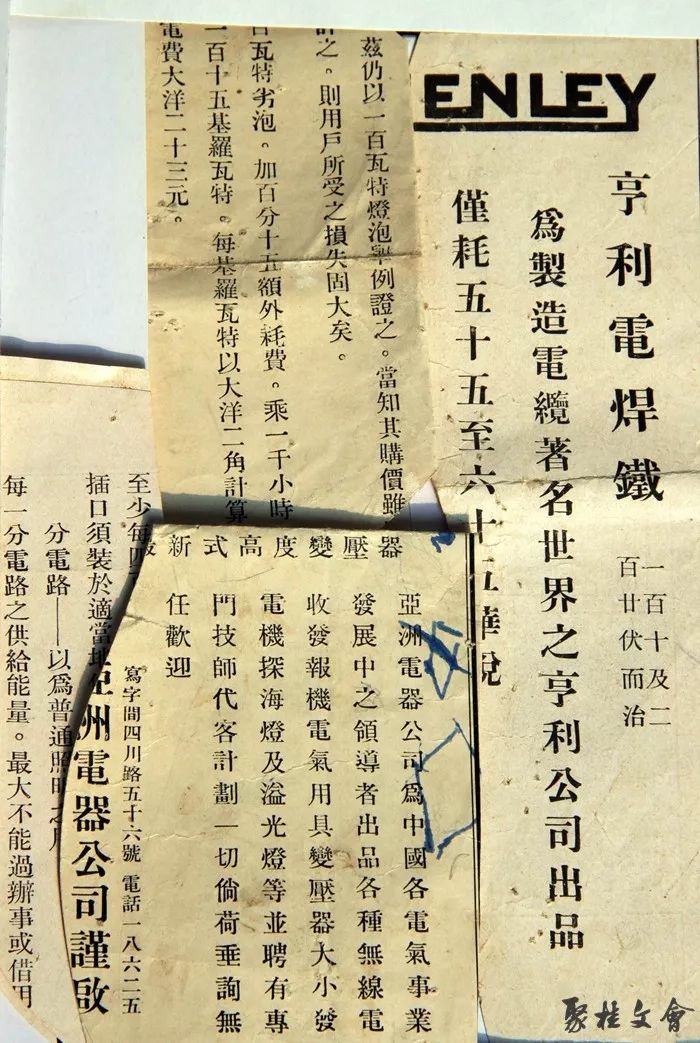 ENLEY
亨利電焊鐵
一百十及二
百廿伏而治
爲製造電纜著名世界之亨利公司出品
僅耗五十五至六十五華脫
茲仍以一百瓦特燈泡舉例證之。當知其購價雖
計之。則用戶所受之損失固大矣。
百瓦特劣泡。加百分十五額外耗費。乘一千小時
一百十五基羅瓦特。每基羅瓦特以大洋二角計算
電費大洋二十三元。
新式高度變壓器
亞洲電器公司爲中國各電氣事業
發展中之領導者出品各種無線電
收發報機電氣用具變壓器大小發
電機探海燈及溢光燈等並聘有專
門技師代客計劃一切倘荷垂詢無
任歡迎
寫字間四川路五十六號 電話一八六二五
亞洲電器公司謹啟
至少每四
插口須裝於適當地
分電路——以爲普通照明之用
每一分電路之供給能量。最大不能過辦事或借用
聚桂文會